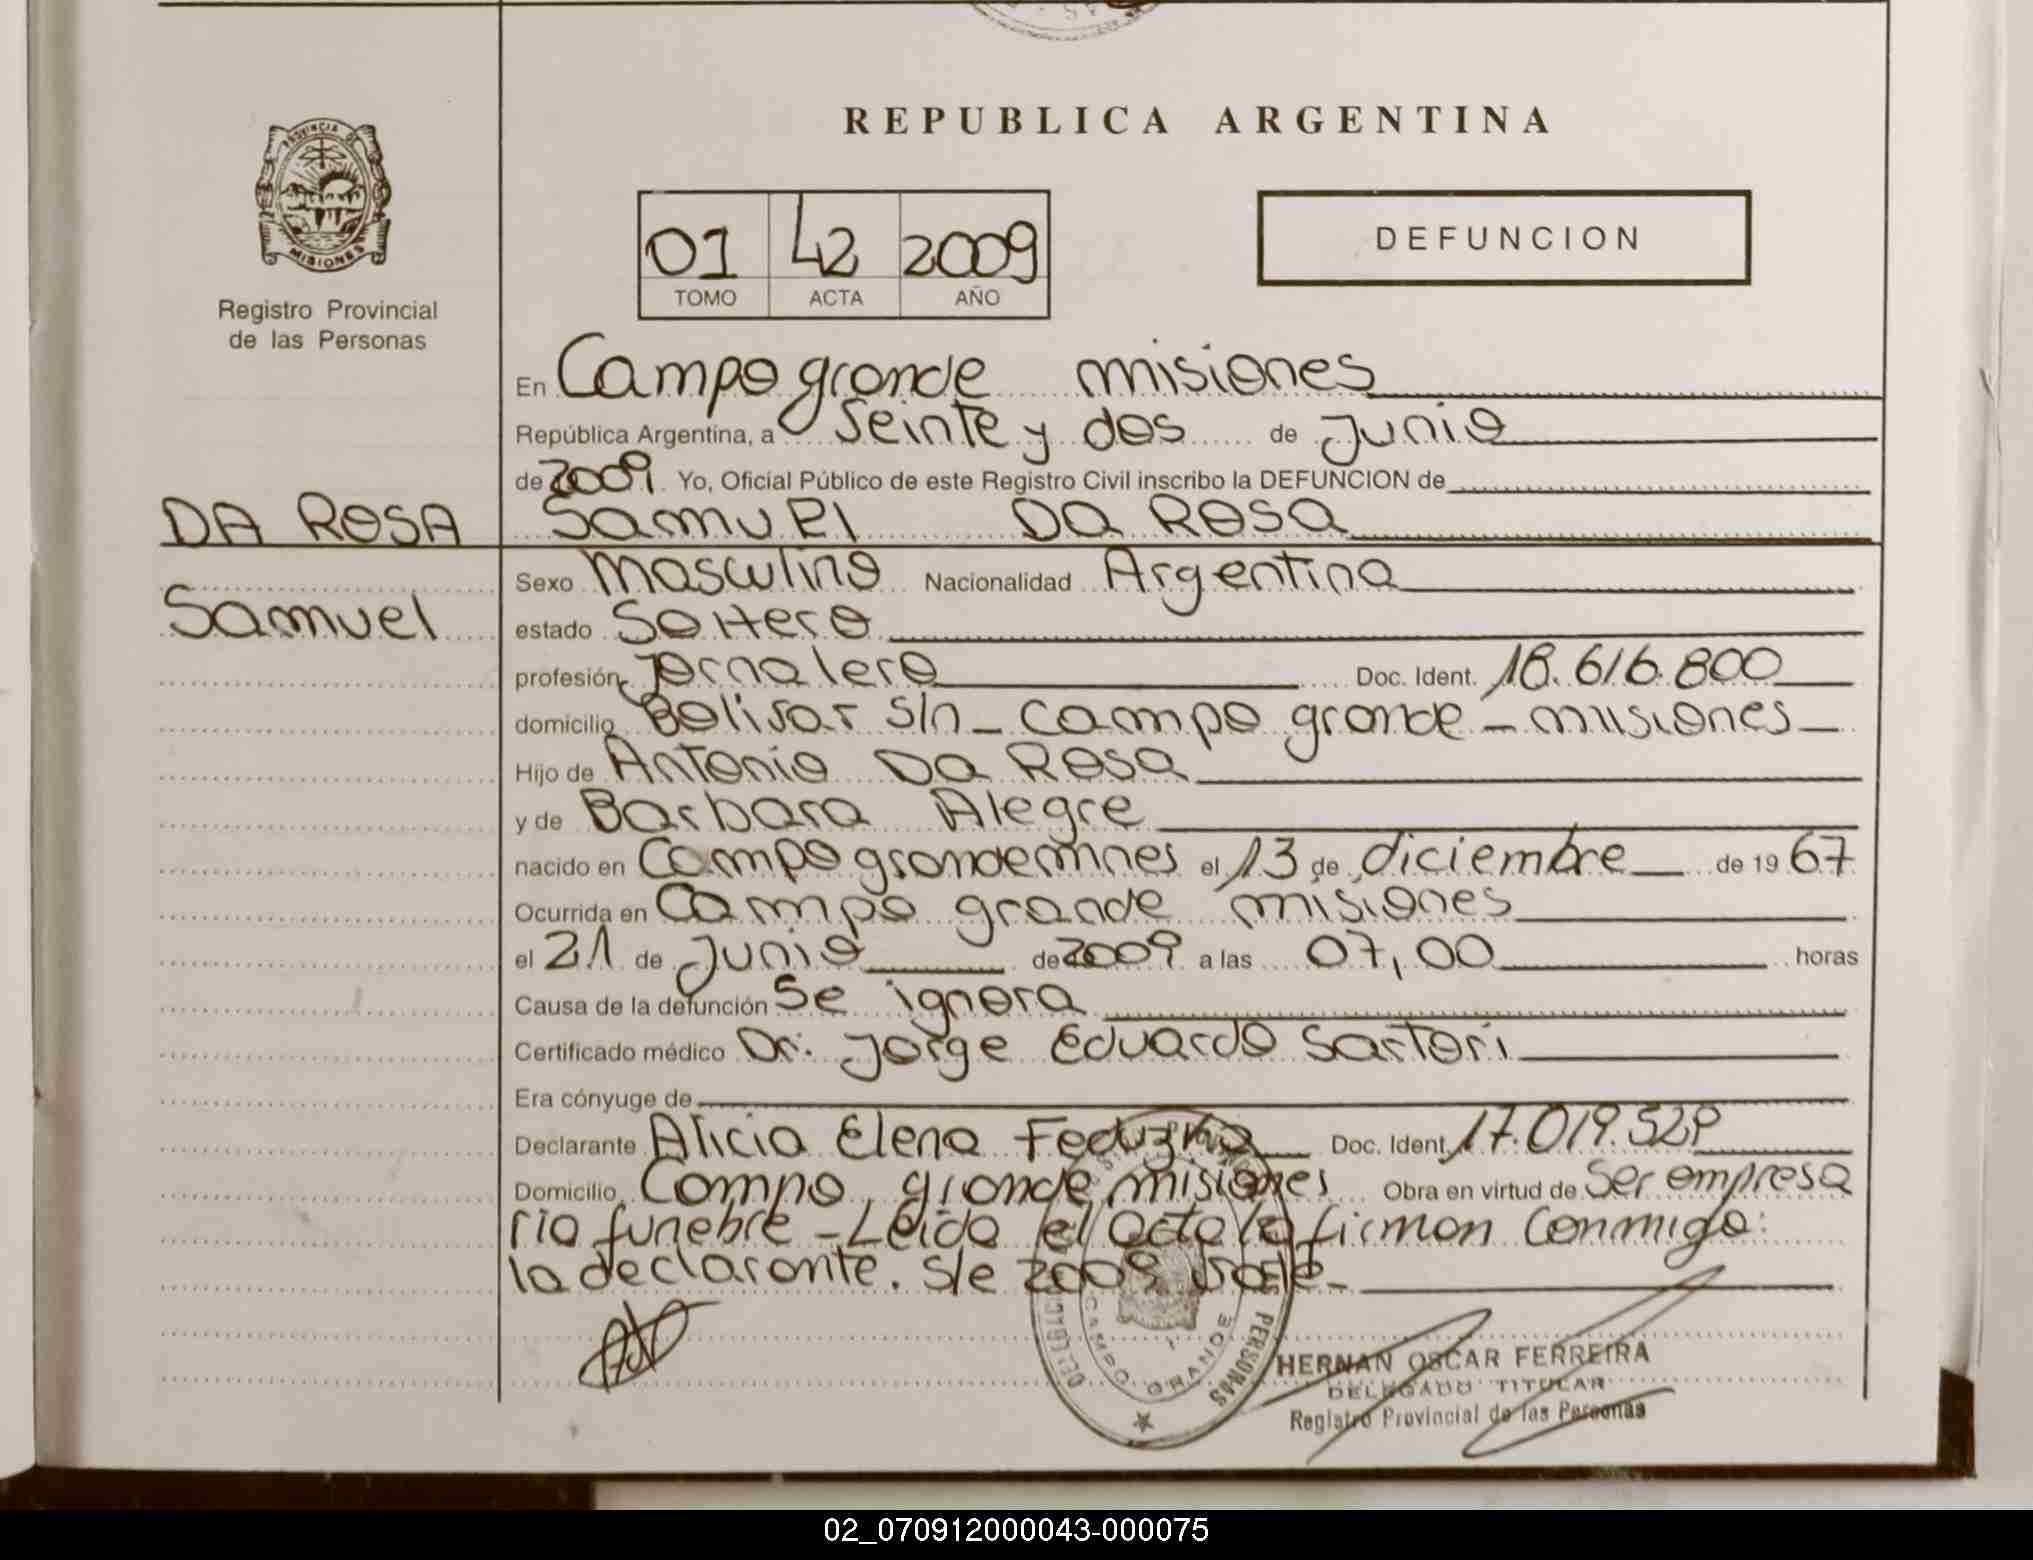 REPUBLICA ARGENTINA
PROVINCIA DE
MISIONES
Registro Provincial
de las Personas
01 42 2009
TOMO ACTA AÑO
DEFUNCION
En Campo grande misiones
República Argentina, a Veinte y dos de Junio
de 2009. Yo, Oficial Público de este Registro Civil inscribo la DEFUNCION de
DA ROSA
Samuel
Samuel DA ROSA
Sexo Masculino Nacionalidad Argentina
estado Soltero
profesión Jornalero Doc. Ident. 18.616.800
domicilio Bolivar s/n - Campo grande - misiones -
Hijo de Antonio DA ROSA
y de Barbara Alegre
nacido en Campo grande mnes el 13 de diciembre de 1967
Ocurrida en Campo grande misiones
el 21 de Junio de 2009 a las 07,00 horas
Causa de la defunción Se ignora
Certificado médico Dr. Jorge Eduardo Sartori
Era cónyuge de
Declarante Alicia Elena Doc. Ident. 17.019.
Domicilio Campo grande misiones Obra en virtud de Ser empresa
ria funebre - Leida el acta la firman Conmigo:
la declarante. S/e 2009 Vale -
CAMPO GRANDE
PERSONAS
HERNAN OSCAR FERREIRA
DELEGADO TITULAR
Registro Provincial de las Personas
02_070912000043-000075